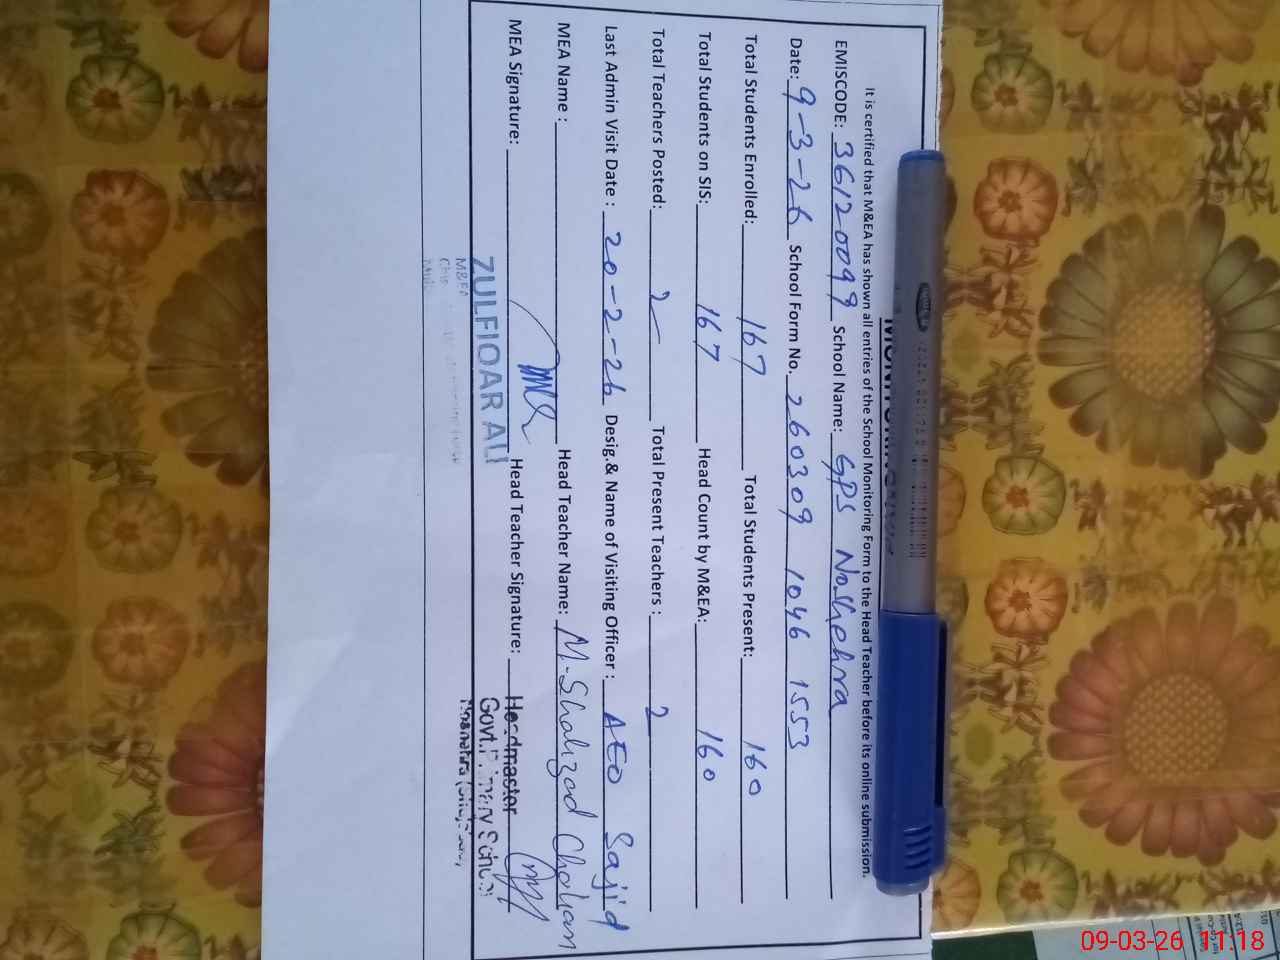 It is certified that M&EA has shown all entries of the School Monitoring Form to the Head Teacher before its online submission.
EMISCODE: 36120099 School Name: GPS Noshehra
Date: 9-3-26 School Form No. 260309 1046 1553
Total Students Enrolled: 167 Total Students Present: 160
Total Students on SIS: 167 Head Count by M&EA: 160
Total Teachers Posted: 2 Total Present Teachers : 2
Last Admin Visit Date : 20-2-26 Desig.& Name of Visiting Officer : AEO Sajid
MEA Name : Head Teacher Name: M-Shahzad Chohan
MEA Signature: Head Teacher Signature:
ZULFIQAR ALI
M&EA
Headmaster
Govt. Primary School
09-03-26 11:18